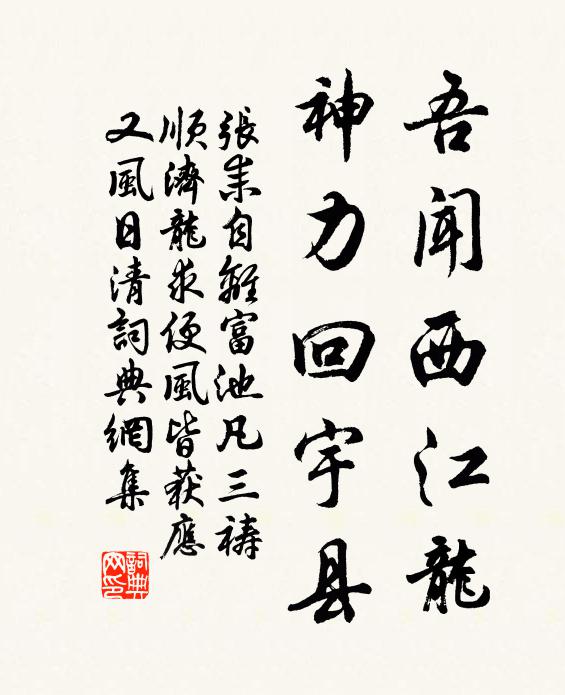 吾闻西江龍
神力回宇县
張耒自離富池凡三禱
順濟龍求便風皆获應
又風日清詞典網集
詞典網印